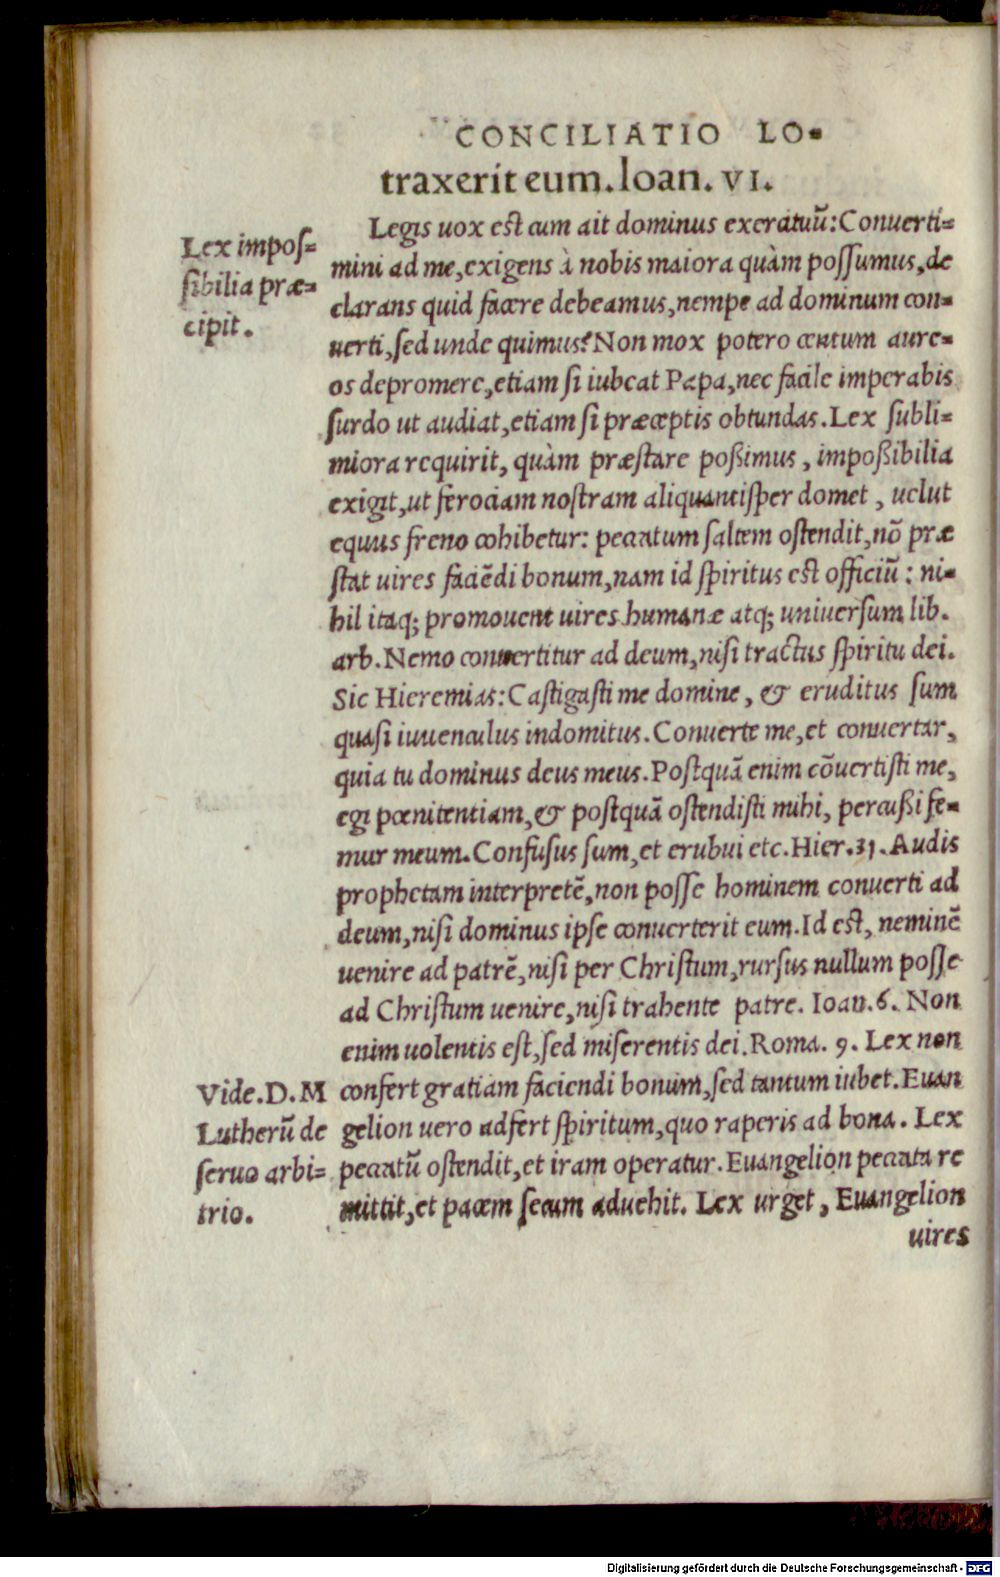 CONCILIATIO LO-
traxerit eum. Ioan. VI.
Lex impos-
sibilia præ-
cipit.
Legis uox est cum ait dominus exercituũ: Conuerti-
mini ad me, exigens à nobis maiora quàm possumus, de
clarans quid facere debeamus, nempe ad dominum con-
uerti, sed unde quimus? Non mox potero centum aure-
os depromere, etiam si iubeat Papa, nec facile imperabis
surdo ut audiat, etiam si præceptis obtundas. Lex subli-
miora requirit, quàm præstare poßimus, impoßibilia
exigit, ut ferociam nostram aliquantisper domet, uelut
equus freno cohibetur: peccatum saltem ostendit, nõ præ
stat uires faciẽdi bonum, nam id spiritus est officiũ: ni-
hil itaq; promouent uires humanæ atq; uniuersum lib.
arb. Nemo conuertitur ad deum, nisi tractus spiritu dei.
Sic Hieremias: Castigasti me domine, & eruditus sum
quasi iuuenculus indomitus. Conuerte me, et conuertar,
quia tu dominus deus meus. Postquã enim cõuertisti me,
egi pœnitentiam, & postquã ostendisti mihi, percußi fe-
mur meum. Confusus sum, et erubui etc. Hier. 31. Audis
prophetam interpretẽ, non posse hominem conuerti ad
deum, nisi dominus ipse conuerterit eum. Id est, neminẽ
uenire ad patrẽ, nisi per Christum, rursus nullum posse
ad Christum uenire, nisi trahente patre. Ioan. 6. Non
enim uolentis est, sed miserentis dei. Roma. 9. Lex non
confert gratiam faciendi bonum, sed tantum iubet. Euan
gelion uero adfert spiritum, quo raperis ad bona. Lex
peccatũ ostendit, et iram operatur. Euangelion peccata re
mittit, et pacem secum aduehit. Lex urget, Euangelion
Vide. D. M
Lutherũ de
seruo arbi-
trio.
uires
Digitalisierung gefördert durch die Deutsche Forschungsgemeinschaft - DFG